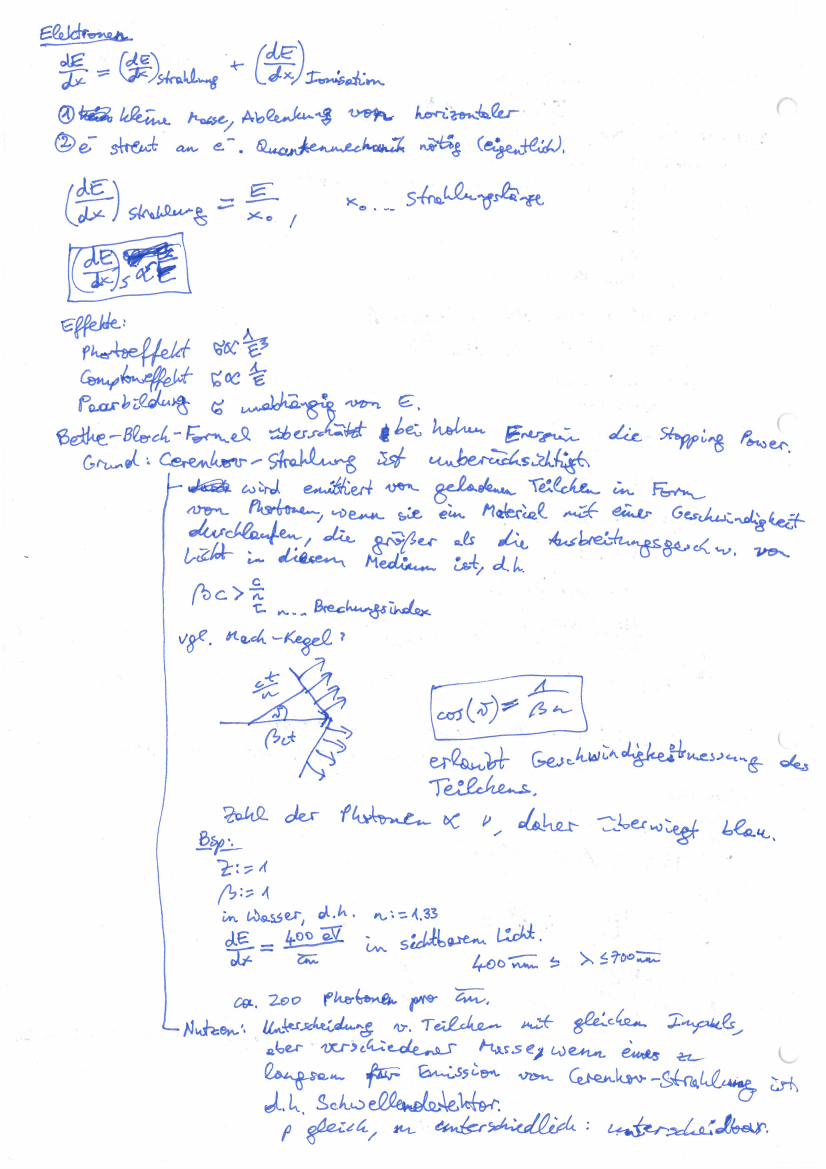 Elektronen
dE/dx = (dE/dx)Strahlung + (dE/dx)Ionisation
① kleine Masse, Ablenkung von horizontaler
② e⁻ streut an e⁻. Quantenmechanik nötig (eigentlich).
(dE/dx)Strahlung = E/x₀, x₀... Strahlungslänge
(dE/dx)s ∝ E
Effekte:
Photoeffekt σ∝ 1/E³
Comptoneffekt σ∝ 1/E
Paarbildung σ unabhängig von E.
Bethe-Bloch-Formel überschätzt bei hohen Energien die Stopping Power.
Grund: Cerenkov-Strahlung ist unberücksichtigt.
wird emittiert von geladenen Teilchen in Form
von Photonen, wenn sie ein Material mit einer Geschwindigkeit
durchlaufen, die größer als die Ausbreitungsgeschw. von
Licht in diesem Medium ist, d.h.
βc > c/n
n... Brechungsindex
vgl. Mach-Kegel:
ct/n
ϑ
βct
cos(ϑ) = 1/βn
erlaubt Geschwindigkeitsmessung des
Teilchens.
Zahl der Photonen ∝ ν, daher überwiegt blau.
Bsp.:
Z:=1
β:=1
in Wasser, d.h. n:=1.33
dE/dx = 400 eV/cm in sichtbarem Licht.
400 nm ≤ λ ≤ 700 nm
ca. 200 Photonen pro cm.
Nutzen: Unterscheidung v. Teilchen mit gleichem Impuls,
aber verschiedener Masse, wenn eines zu
langsam für Emission von Cerenkov-Strahlung ist,
d.h. Schwellendetektor.
p gleich, m unterschiedlich: unterscheidbar.